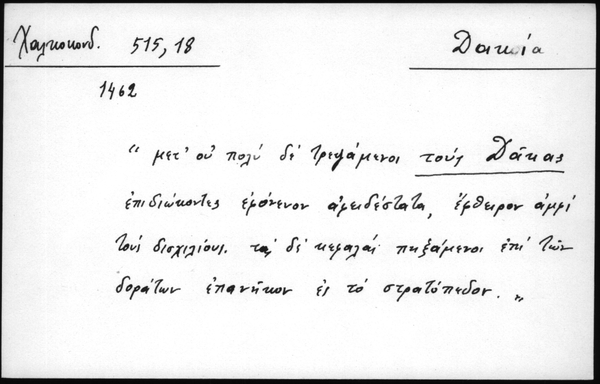 Χαλκοκονδ. 515,18
Δακία
1462
“ μετ' οὐ πολύ δέ τρεψάμενοι τούς Δᾶκας
ἐπιδιώκοντες ἐφόνευον ἀφειδέστατα, ἔφθειρον ἀμφί
τούς δισχιλίους. τάς δέ κεφαλάς πηξάμενοι ἐπί τῶν
δοράτων ἐπανῆκον ἐς τό στρατόπεδον. „